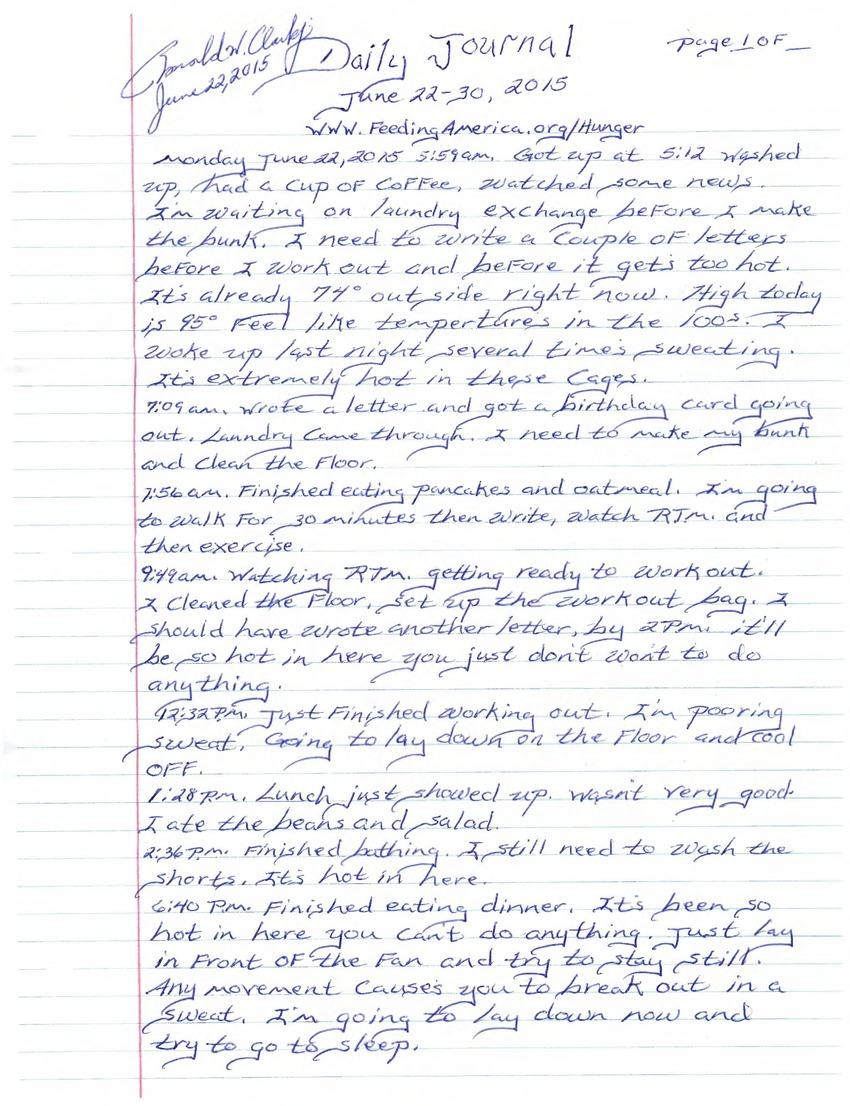 Ronald W. Clark Jr
June 22, 2015
Daily Journal
page 1 of _
June 22-30, 2015
www.FeedingAmerica.org/Hunger
Monday June 22, 2015 5:59am. Got up at 5:12 washed
up, had a cup of coffee, watched some news.
I'm waiting on laundry exchange before I make
the bunk. I need to write a couple of letters
before I work out and before it gets too hot.
It's already 74° out side right now. High today
is 95° Feel like tempertures in the 100s. I
woke up last night several times sweating.
It's extremely hot in these cages.
7:09am. Wrote a letter and got a birthday card going
out. Laundry came through. I need to make my bunk
and clean the floor.
7:56am. Finished eating pancakes and oatmeal. I'm going
to walk for 30 minutes then write, watch RTM. and
then exercise.
9:49am. Watching RTM. getting ready to work out.
I cleaned the floor, set up the workout bag. I
should have wrote another letter, by 2PM. it'll
be so hot in here you just don't want to do
anything.
12:32PM. Just finished working out. I'm pooring
sweat. Going to lay down on the floor and cool
off.
1:28PM. Lunch just showed up. Wasn't very good.
I ate the beans and salad.
2:36PM. Finished bathing. I still need to wash the
shorts. It's hot in here.
6:40 P.M. Finished eating dinner. It's been so
hot in here you can't do anything. Just lay
in front of the fan and try to stay still.
Any movement causes you to break out in a
sweat. I'm going to lay down now and
try to go to sleep.